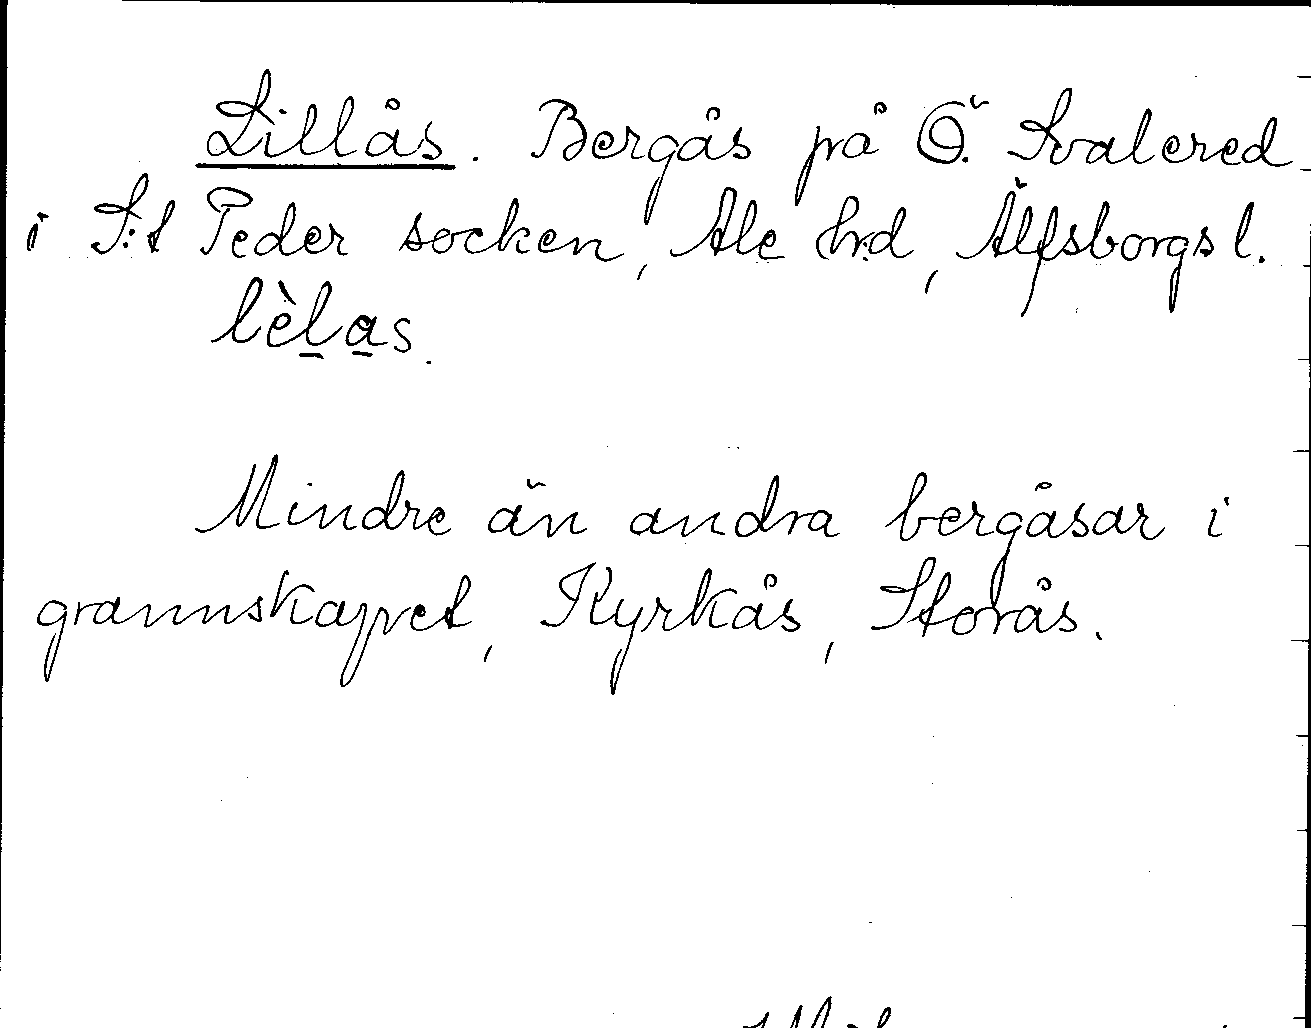 Lillås. Bergås på Ö. Svalered
i S:t Peder socken, Ale hrd, Älfsborgs l.
lèl̠a̠s.
Mindre än andra bergåsar i
grannskapet, Kyrkås, Storås.